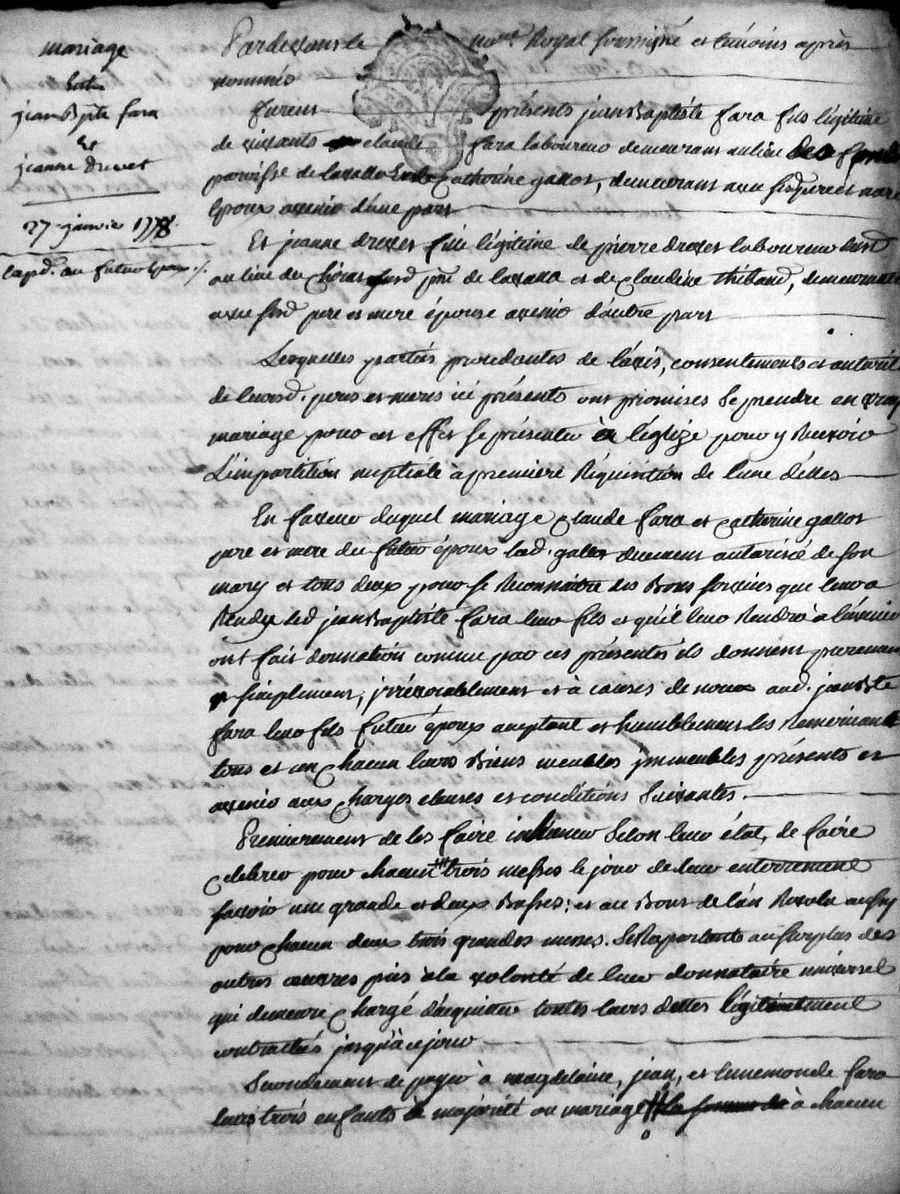 mariage
Entre
jean Bpte fara
Et
jeanne drevet
27 janvier 1778
Exp.d. au futur Epoux ./.
Pardevant le no.re Royal soussigné et temoins après
nommés
furent présents jean Baptiste fara fils légitime
de vivants claude fara laboureur demeurant au lieu
paroisse de lavalla et de Catherine gallot, demeurant avec sesd. pere et mere
Epoux avenir d'une part
Et jeanne drevet fille légitime de pierre drevet laboureur
au lieu du de lavalla et de Claudine thibaud, demeurante
avec sesd. pere et mere épouse avenir d'autre part
Lesquelles parties procedantes de l'avis, consentements et autorité
de leursd. peres et meres ici présents ont promises se prendre en vray
mariage pour cet effet se présenter à l'église pour y Recevoir
L'impartition nuptiale à premiere Réquisition de l'une d'elles
En faveur duquel mariage Claude fara et Catherine gallot
pere et mere du futur époux lad. gallot duement autorisée de son
mary et tous deux pour se Reconnaitre des Bons services que leur a
Rendu led. jean Baptiste fara leur fils et qu'il leur Rendra à l'avenir
ont fait donnation comme par ces présentes ils donnent purement
simplement, jrrévocablement et à causes de noces aud. jean Bte
fara leur fils futur époux acceptant et humblement les Remerciant
tous et un chacun leurs Biens meubles jmmeubles présents et
avenir aux charges clauses et conditions suivantes.
Premierement de les faire inhumer selon leur état, de faire
Celebrer pour chacun trois messes le jour de leur enterrement
savoir une grande et deux Basses; et au Bout de l'an Revolu aussy
pour chacun deux trois grandes messes. Se Raportants au surplus des
autres œuvres pies à la volonté de leur donnataire universel
qui demeure Chargé d'acquitter toutes leurs dettes légitimement
contractées jusqu'à ce jour
Secondement de payer à magdelaine, jean, et ennemonde fara
leurs trois enfants à majorité ou mariage la somme de à chacun